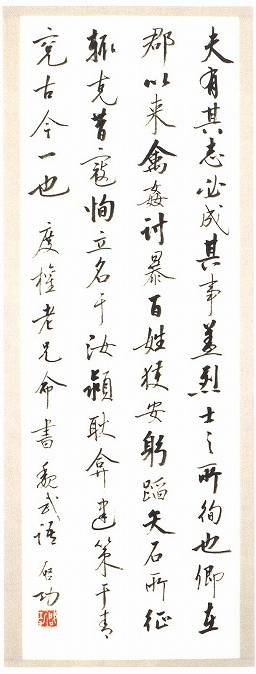 夫有其志必成其事盖烈士之所徇也卿在
郡以来禽姦討暴百姓獲安躬蹈矢石所征
輒克昔寇恂立名于汝潁耿弇建策于青
兖古今一也 度權老兄命書 魏武語 啓功